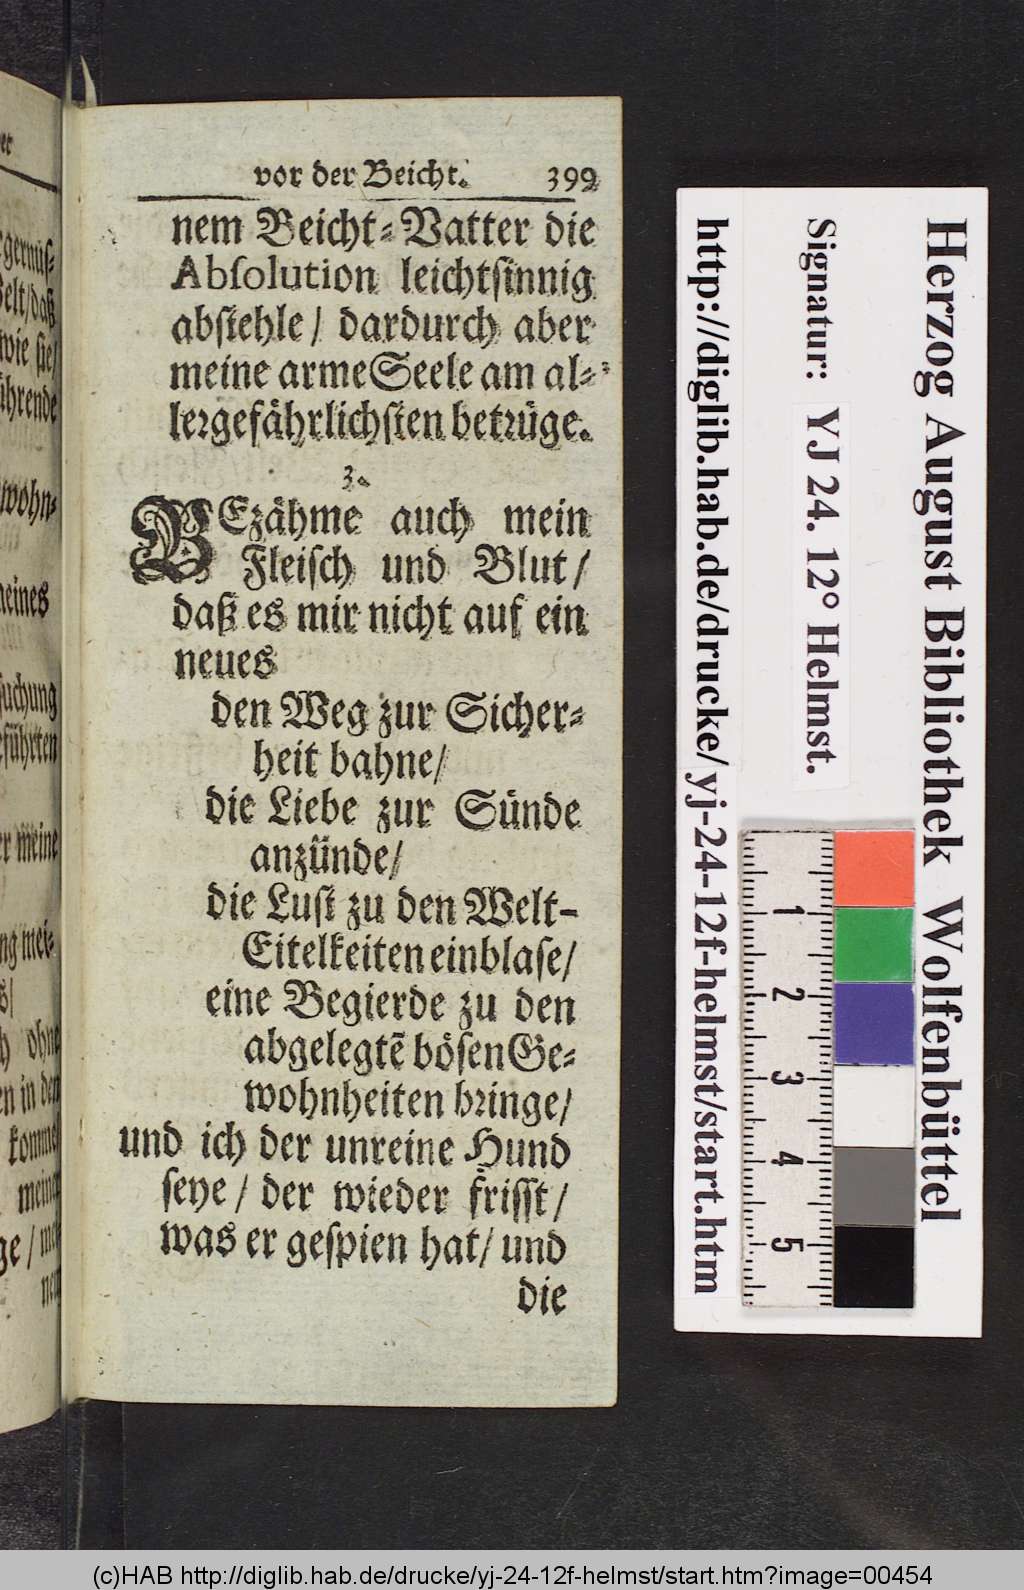 vor der Beicht. 399
nem Beicht⸗Vatter die
Abſolution leichtſinnig
abſtehle / dardurch aber
meine arme Seele am al⸗
lergefährlichſten betrüge.
3.
BEzähme auch mein
Fleiſch und Blut /
daß es mir nicht auf ein
neues
den Weg zur Sicher⸗
heit bahne /
die Liebe zur Sünde
anzünde /
die Luſt zu den Welt-
Eitelkeiten einblaſe /
eine Begierde zu den
abgelegtẽ böſen Ge⸗
wohnheiten bringe /
und ich der unreine Hund
ſeye / der wieder friſſt /
was er geſpien hat / und
die
wohn⸗
meines
ſuchung
führten
meine
mei⸗
ohne
in den
komme
Herzog August Bibliothek Wolfenbüttel
Signatur: YJ 24. 12° Helmst.
http://diglib.hab.de/drucke/yj-24-12f-helmst/start.htm
1
2
3
4
5
(c)HAB http://diglib.hab.de/drucke/yj-24-12f-helmst/start.htm?image=00454